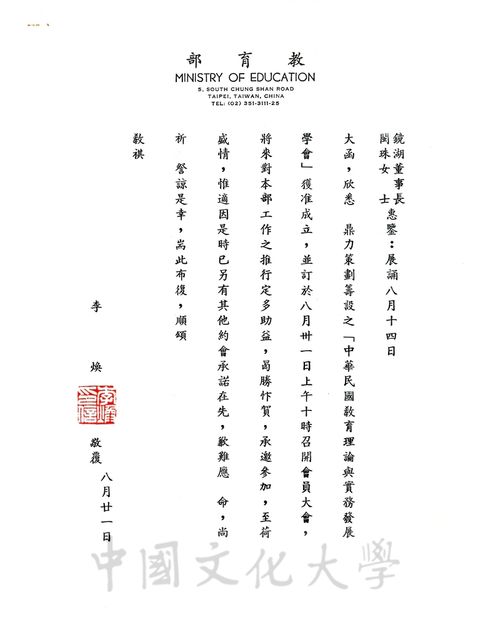 部育教
MINISTRY OF EDUCATION
5, SOUTH CHUNG SHAN ROAD
TAIPEI, TAIWAN, CHINA
TEL: (02) 351-3111-25
鏡湖董事長
閔珠女士惠鑒：展誦八月十四日
大函，欣悉 鼎力策劃籌設之「中華民國教育理論與實務發展
學會」獲准成立，並訂於八月卅一日上午十時召開會員大會，
將來對本部工作之推行定多助益，曷勝忭賀，承邀參加，至荷
盛情，惟適因是時已另有其他約會承諾在先，歉難應 命，尚
祈 詧諒是幸，耑此布復，順頌
教祺
李 煥 敬覆 八月廿一日
李煥
中國文化大學